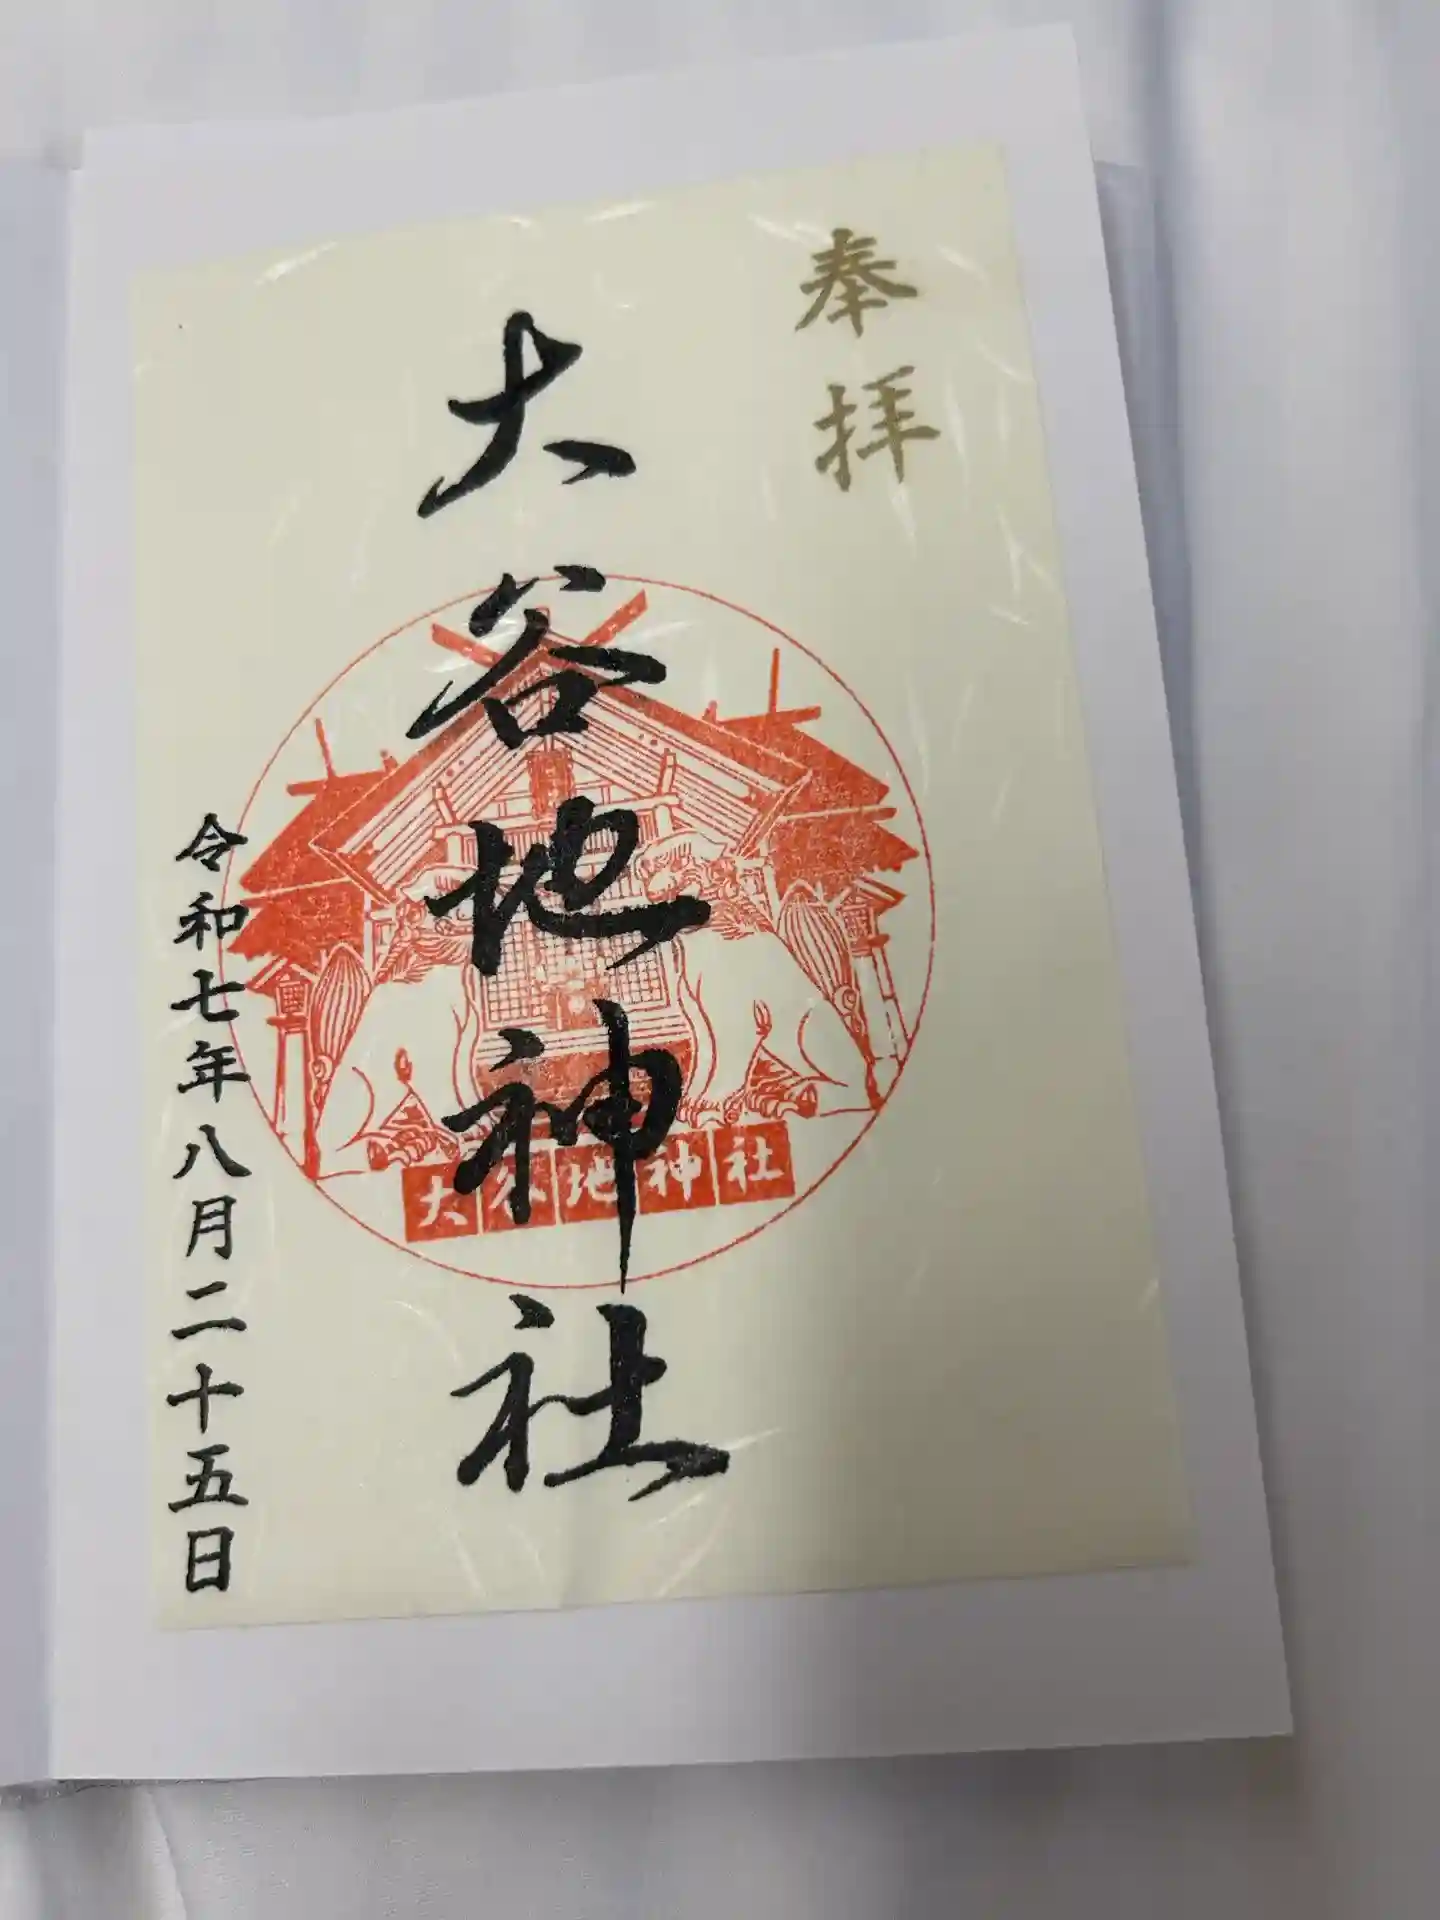 奉拝
大谷地神社
大谷地神社
令和七年八月二十五日